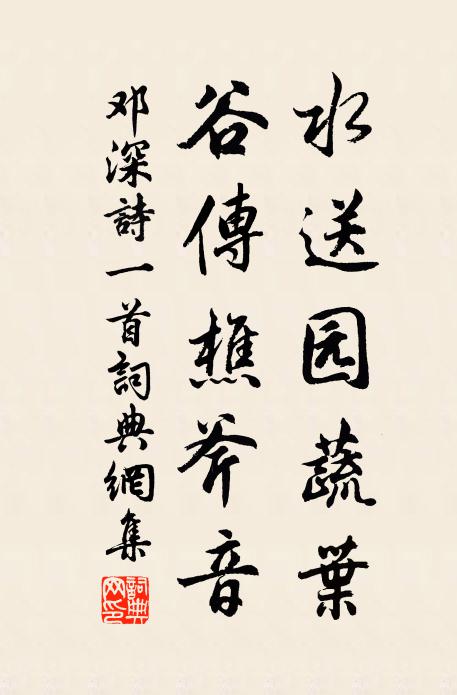 水送园蔬葉
谷傳樵斧音
邓深詩一首詞典網集
詞典网印